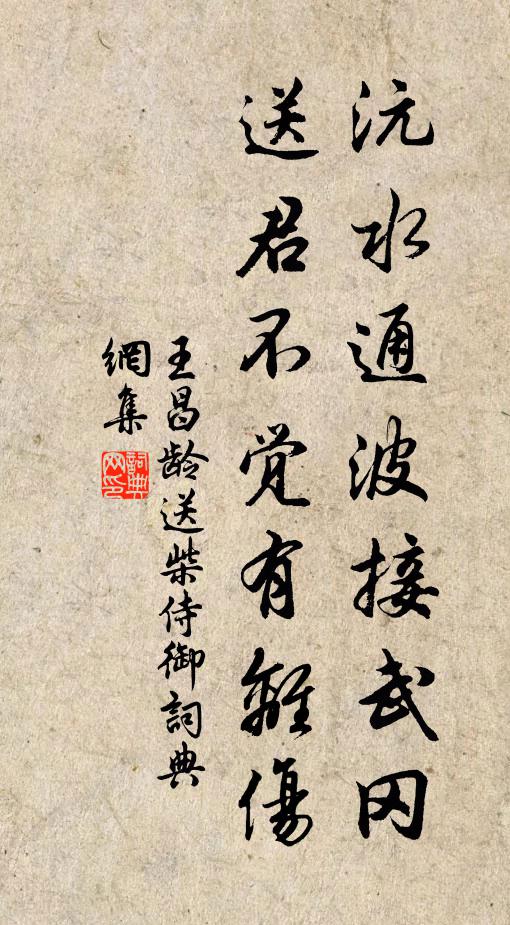 沅水通波接武冈
送君不觉有離傷
王昌龄送柴侍御詞典
網集
詞典
网印